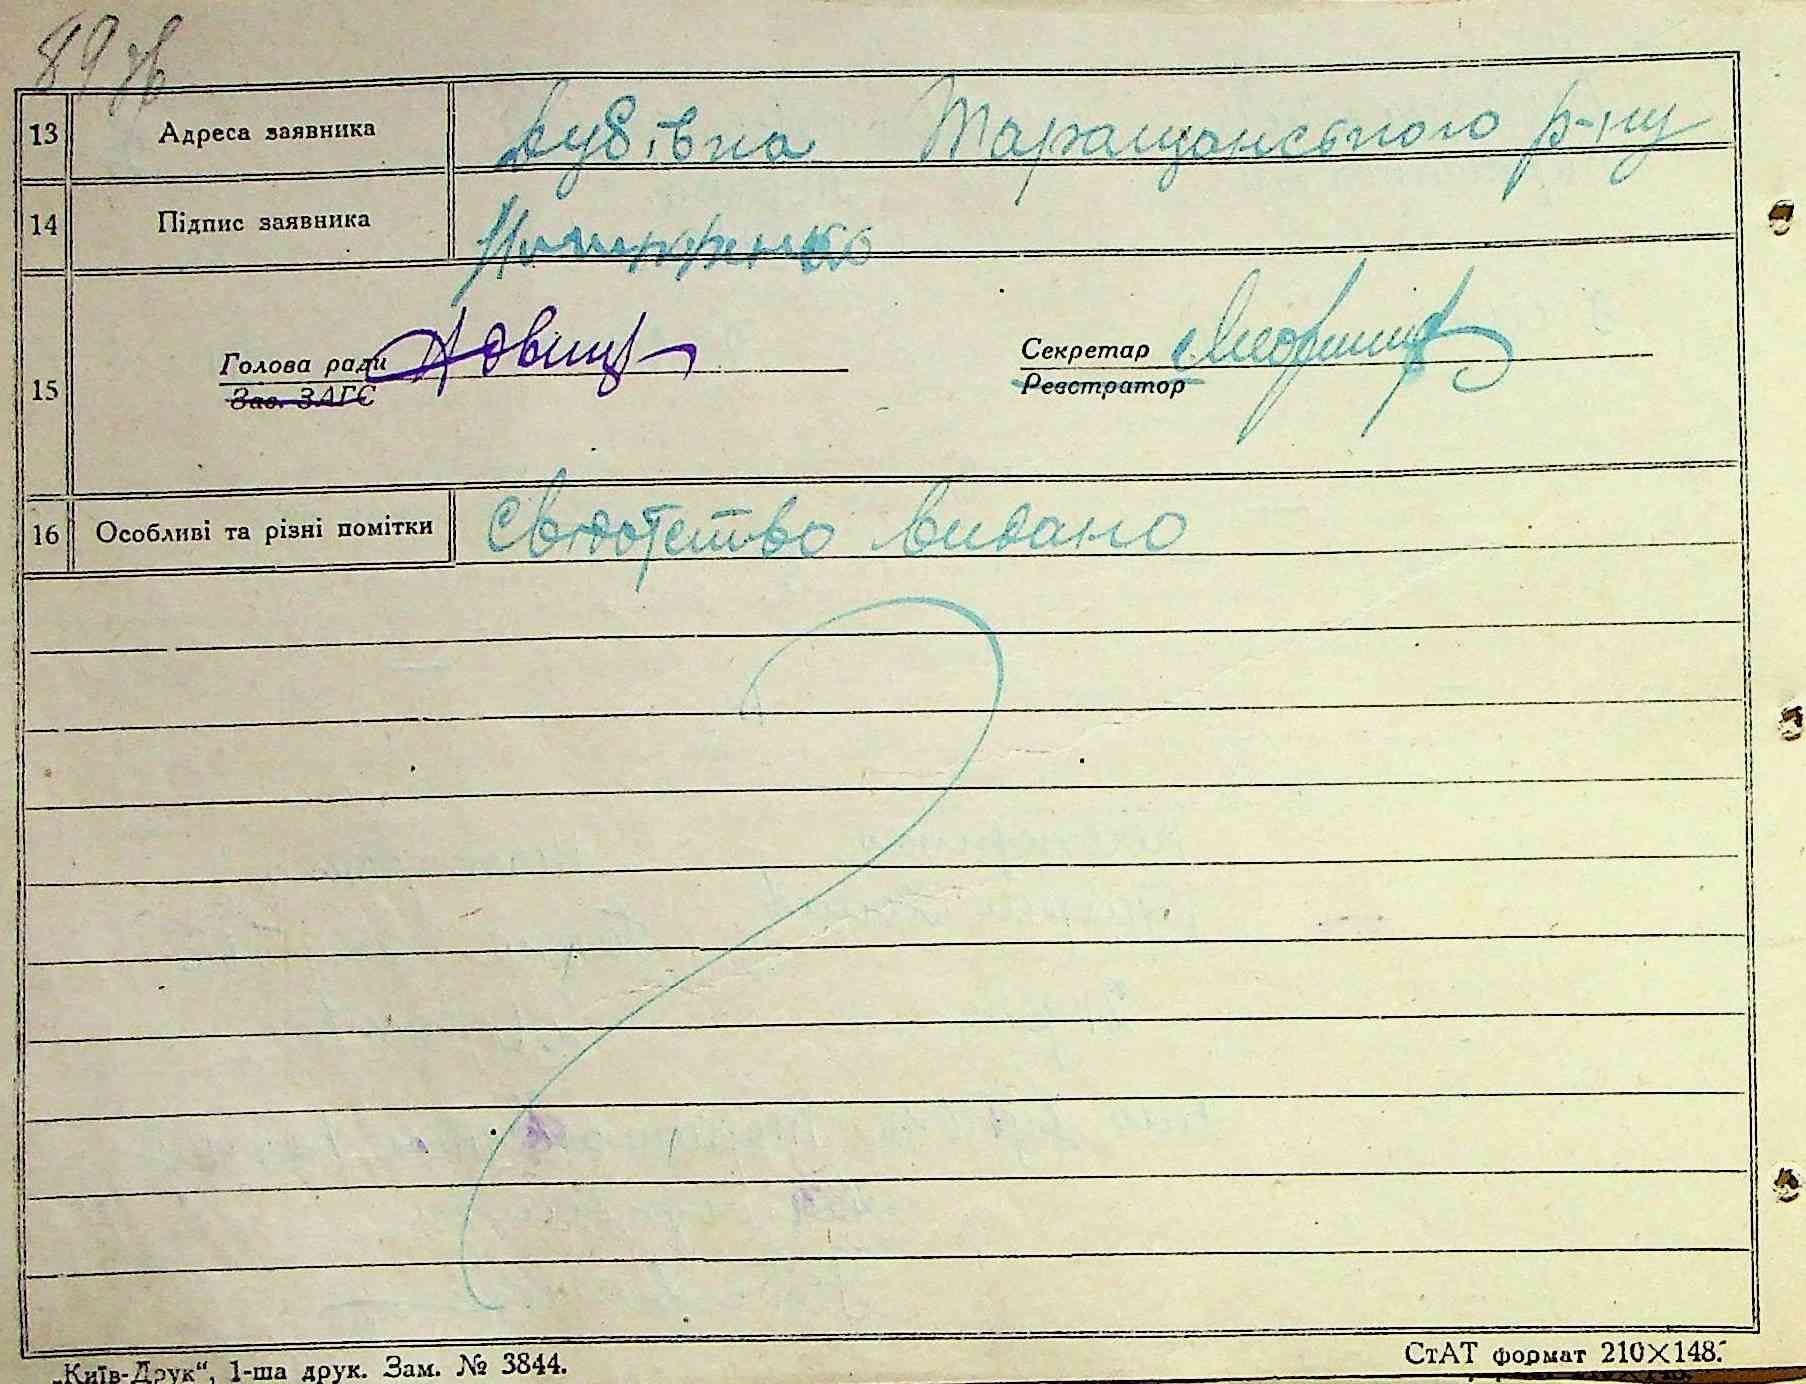 89 зв
13 Адреса заявника Лубівка Таращанського р-ну
14 Підпис заявника
15 Голова ради Секретар
Зав. ЗАГС Реєстратор
16 Особливі та різні помітки Свідотство видано
„Київ-Друк“, 1-ша друк. Зам. № 3844. СтАТ формат 210×148.